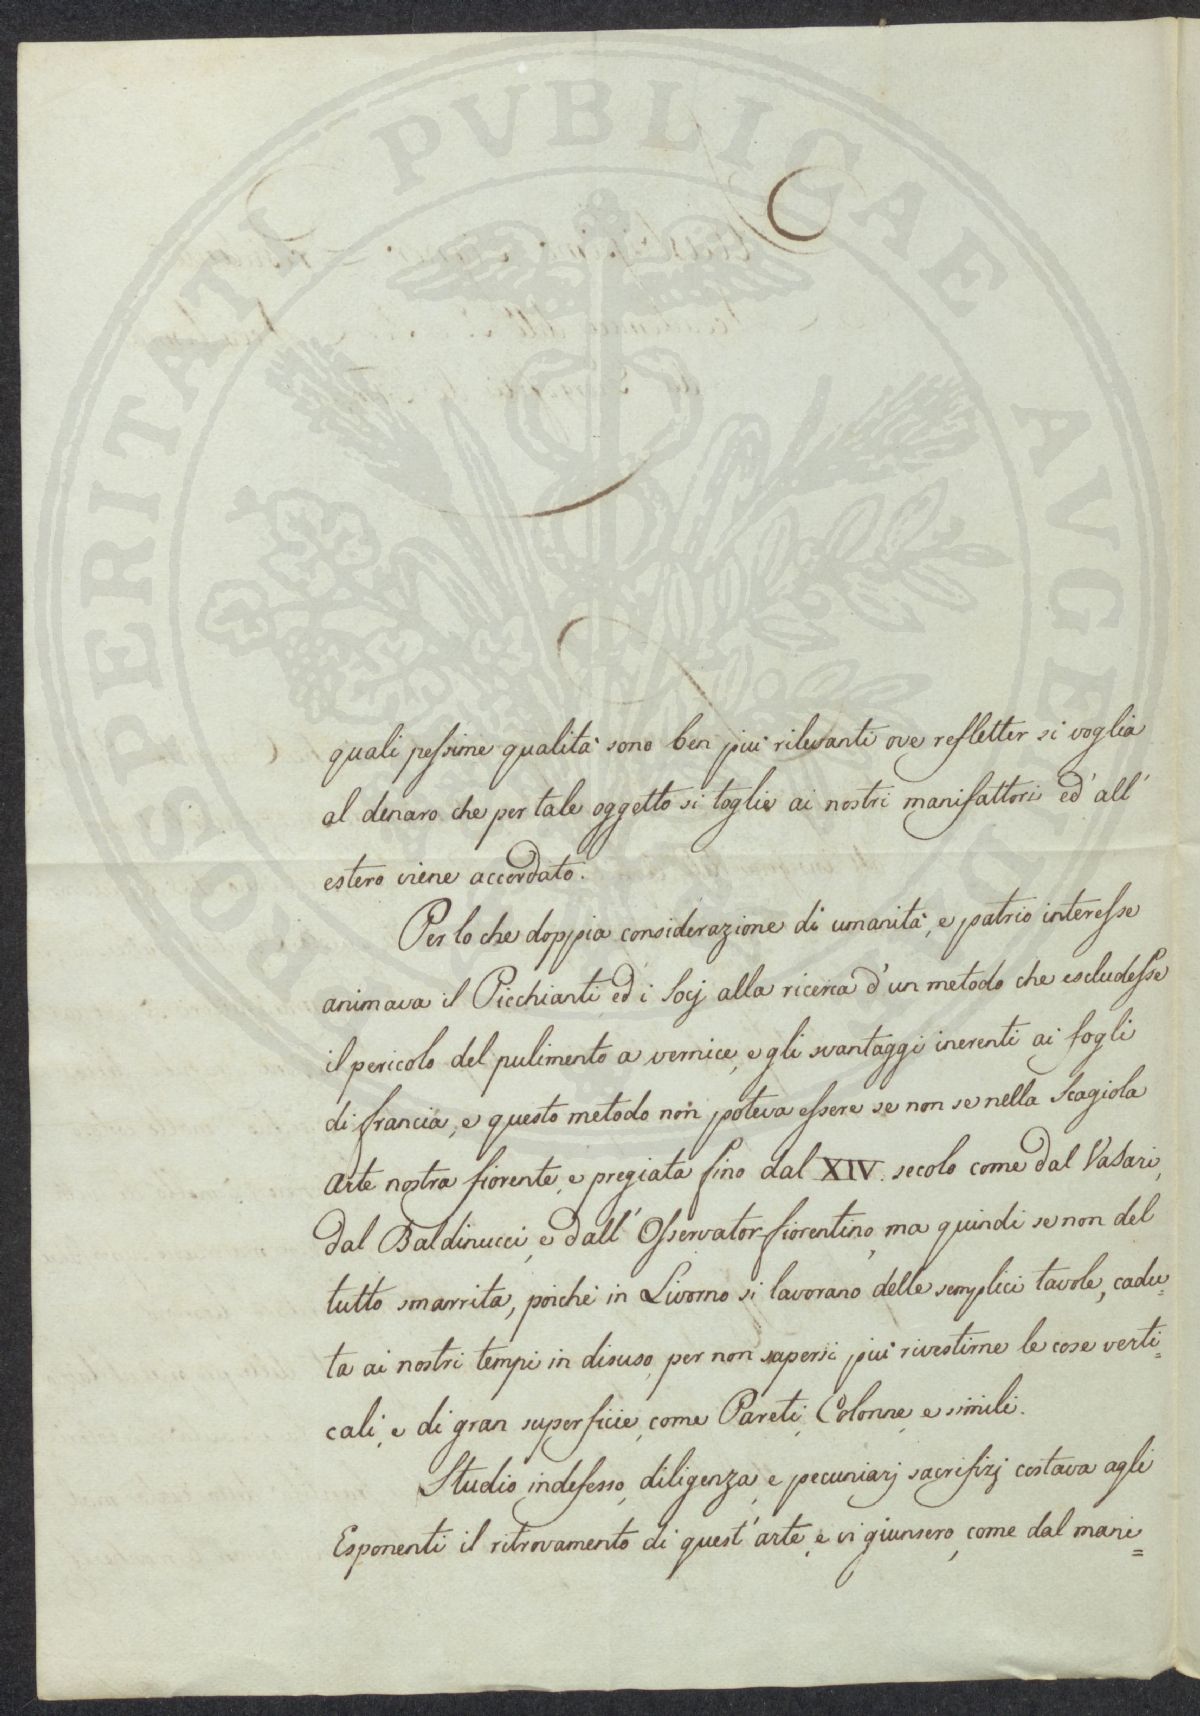 PROSPERITATI PVBLICAE AVGENDAE
quali pessime qualità sono ben più rilevanti ove refletter si voglia
al denaro che per tale oggetto si toglie ai nostri manifattori ed' all'
estero viene accordato.
Per lo che doppia considerazione di umanità, e patrio interesse
animava il Picchianti ed i Socj alla ricerca d'un metodo che escludesse
il pericolo del pulimento a vernice, e gli svantaggi inerenti ai fogli
di francia, e questo metodo non poteva essere se non se nella Scagiola
Arte nostra fiorente, e pregiata fino dal XIV. secolo come dal Vasari,
dal Baldinucci, e dall' Osservator fiorentino, ma quindi se non del
tutto smarrita, poiché in Livorno si lavorano delle semplici tavole, cadu=
ta ai nostri tempi in disuso, per non sapersi più rivestirne le cose verti=
cali, e di gran superficie, come Pareti, Colonne, e simili.
Studio indefesso, diligenza, e pecuniarj sacrifizj costava agli
Esponenti il ritrovamento di quest' arte, e vi giunsero, come dal mani=